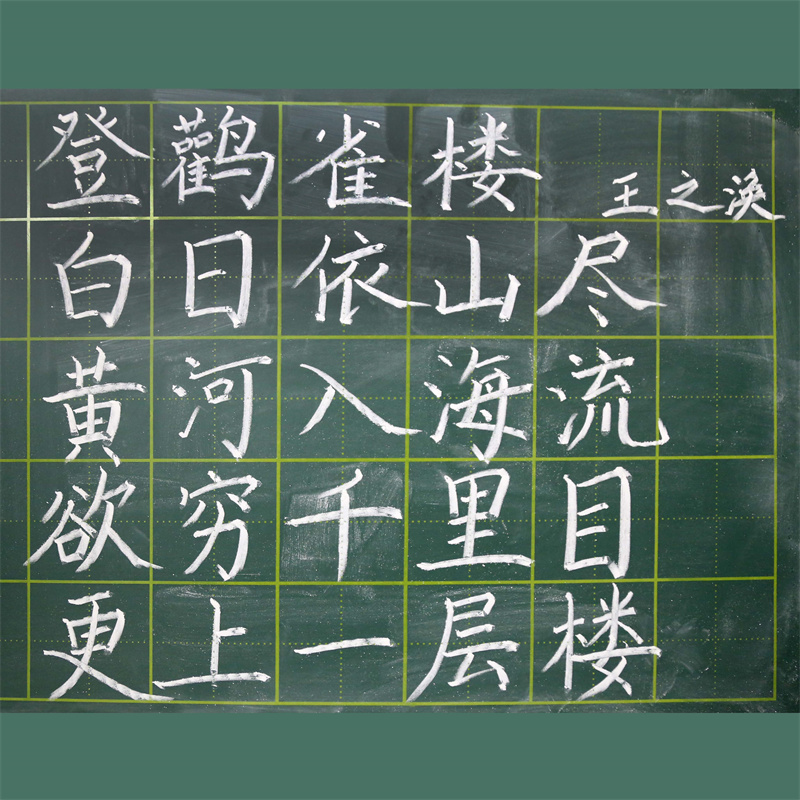 登鹳雀楼 王之涣
白日依山尽
黄河入海流
欲穷千里目
更上一层楼